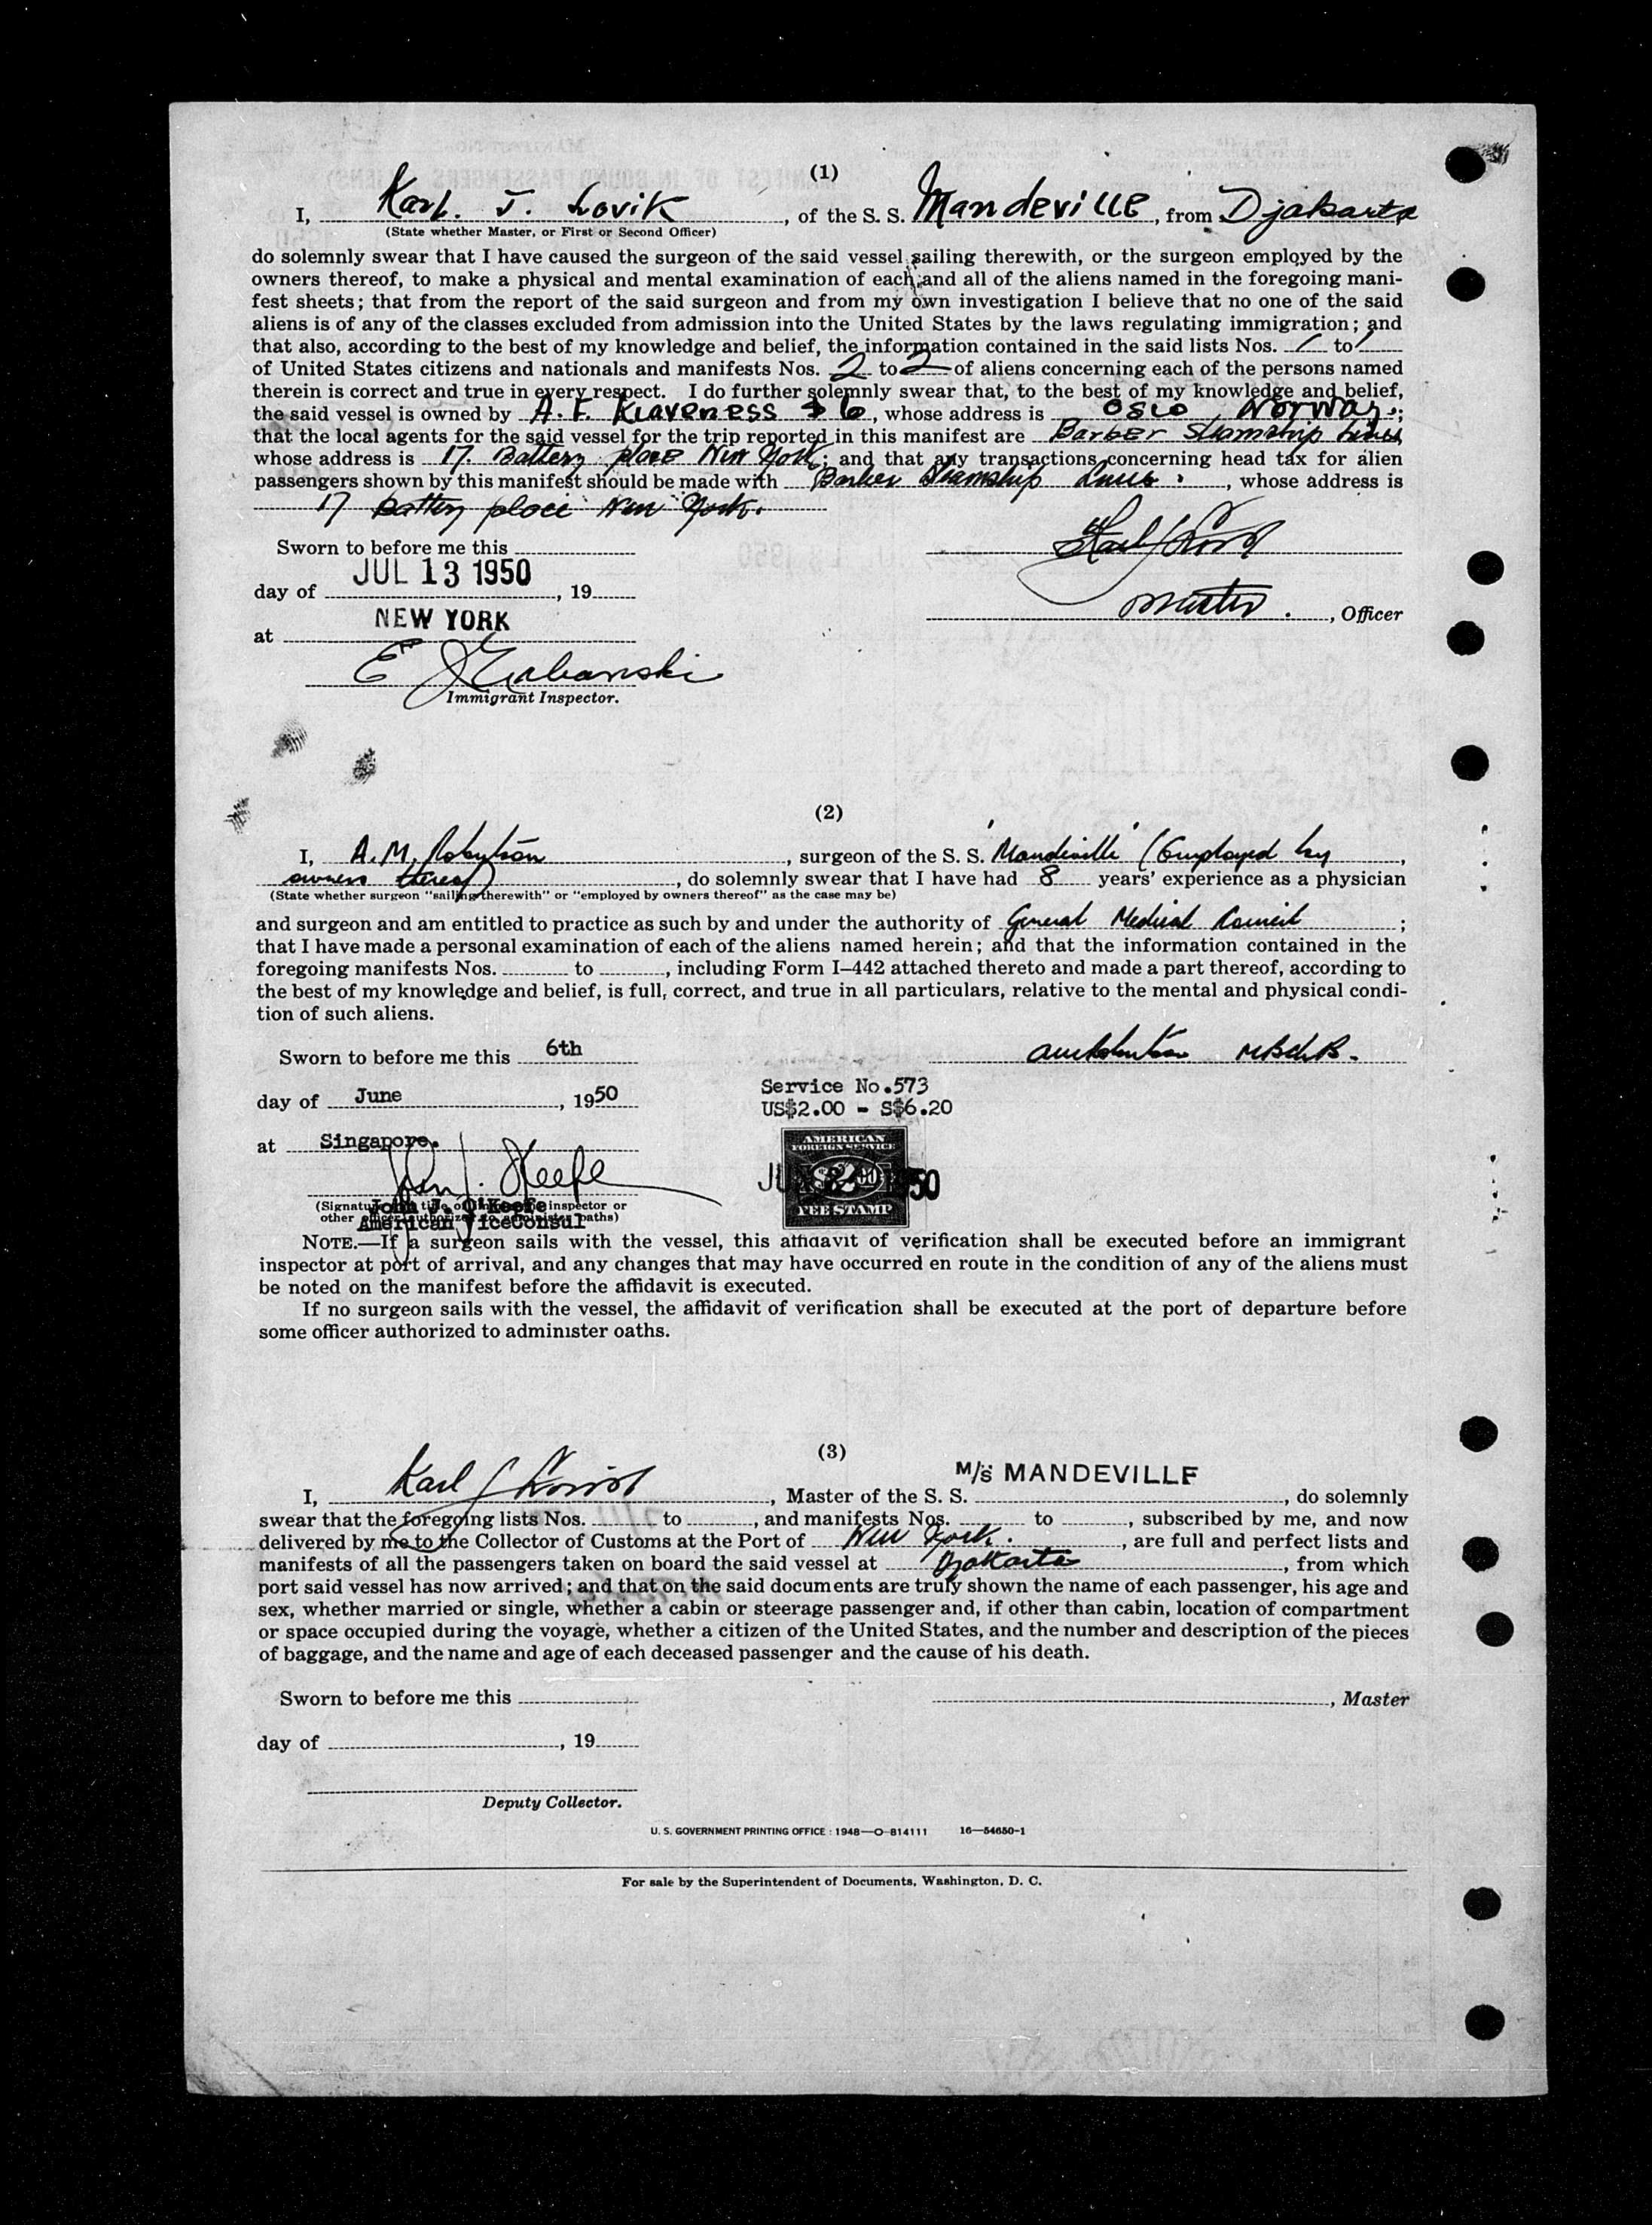 (1)
I, Karl. J. Lovik, of the S. S. Mandeville, from Djakarta
(State whether Master, or First or Second Officer)
do solemnly swear that I have caused the surgeon of the said vessel sailing therewith, or the surgeon employed by the
owners thereof, to make a physical and mental examination of each and all of the aliens named in the foregoing mani-
fest sheets; that from the report of the said surgeon and from my own investigation I believe that no one of the said
aliens is of any of the classes excluded from admission into the United States by the laws regulating immigration; and
that also, according to the best of my knowledge and belief, the information contained in the said lists Nos. 1 to 1
of United States citizens and nationals and manifests Nos. 2 to 2 of aliens concerning each of the persons named
therein is correct and true in every respect. I do further solemnly swear that, to the best of my knowledge and belief,
the said vessel is owned by A. F. Klaveness & Co, whose address is Oslo, Norway.;
that the local agents for the said vessel for the trip reported in this manifest are Barber Steamship Lines
whose address is 17. Battery place New York; and that any transactions concerning head tax for alien
passengers shown by this manifest should be made with Barber Steamship Lines., whose address is
17 Battery place New York.
Sworn to before me this
JUL 13 1950
day of , 19
Master., Officer
NEW YORK
at
E
Immigrant Inspector.
(2)
I, A. M. Robertson, surgeon of the S. S. 'Mandeville' (Employed by,
owners thereof), do solemnly swear that I have had 8 years' experience as a physician
(State whether surgeon "sailing therewith" or "employed by owners thereof" as the case may be)
and surgeon and am entitled to practice as such by and under the authority of General Medical Council;
that I have made a personal examination of each of the aliens named herein; and that the information contained in the
foregoing manifests Nos. to , including Form I–442 attached thereto and made a part thereof, according to
the best of my knowledge and belief, is full, correct, and true in all particulars, relative to the mental and physical condi-
tion of such aliens.
Sworn to before me this 6th
AMRobertson MBChB.
day of June, 1950
Service No.573
US$2.00 - S$6.20
at Singapore.
AMERICAN
FOREIGN SERVICE
$2.00
FEE STAMP
John J. O'Keefe
(Signature and title of immigrant inspector or
John J. O'Keefe
other officer authorized to administer oaths)
American ViceConsul
NOTE.—If a surgeon sails with the vessel, this affidavit of verification shall be executed before an immigrant
inspector at port of arrival, and any changes that may have occurred en route in the condition of any of the aliens must
be noted on the manifest before the affidavit is executed.
If no surgeon sails with the vessel, the affidavit of verification shall be executed at the port of departure before
some officer authorized to administer oaths.
(3)
I, Karl J Lovik, Master of the S. S. M/S MANDEVILLE, do solemnly
swear that the foregoing lists Nos. to , and manifests Nos. to , subscribed by me, and now
delivered by me to the Collector of Customs at the Port of New York., are full and perfect lists and
manifests of all the passengers taken on board the said vessel at Djakarta, from which
port said vessel has now arrived; and that on the said documents are truly shown the name of each passenger, his age and
sex, whether married or single, whether a cabin or steerage passenger and, if other than cabin, location of compartment
or space occupied during the voyage, whether a citizen of the United States, and the number and description of the pieces
of baggage, and the name and age of each deceased passenger and the cause of his death.
Sworn to before me this
, Master
day of , 19
Deputy Collector.
U. S. GOVERNMENT PRINTING OFFICE : 1948—O-814111 16—54650-1
For sale by the Superintendent of Documents, Washington, D. C.